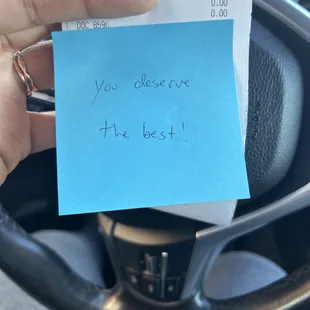 0.00
0.00
You deserve
the best!